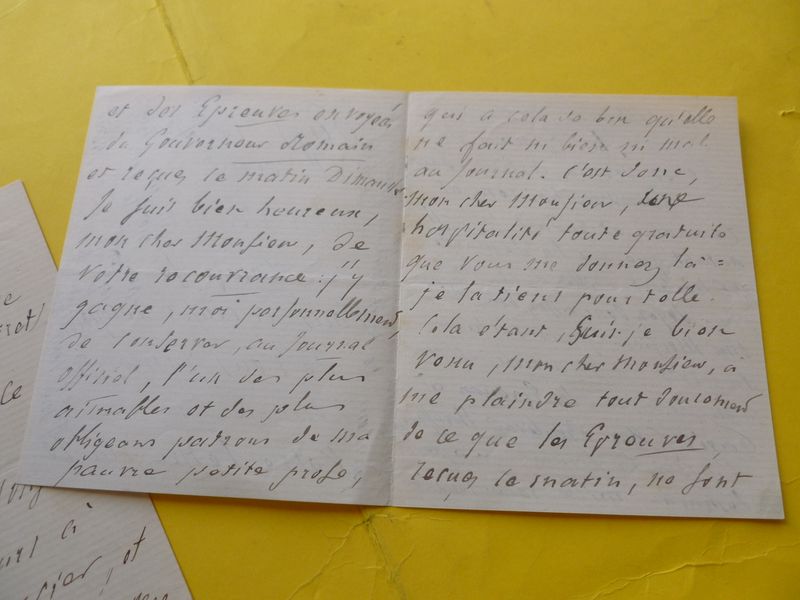 et des Epreuves envoyées
du Gouverneur Romain
et reçues ce matin Dimanche
Je suis bien heureux,
mon cher Monsieur, de
votre recouvrance : j'y
gagne, moi personnellement,
de conserver, au Journal
officiel, l'un des plus
aimables et des plus
obligeans patrons de ma
pauvre petite prose,
qui a cela de bon qu'elle
ne fait ni bien ni mal
au Journal. C'est donc,
mon cher Monsieur, une
hospitalité toute gratuite
que vous me donnez là =
je la tiens pour telle.
Cela étant, suis-je bien
venu, mon cher Monsieur, à
me plaindre tout doucement
de ce que les Epreuves,
reçues ce matin, ne sont
ce
à
et